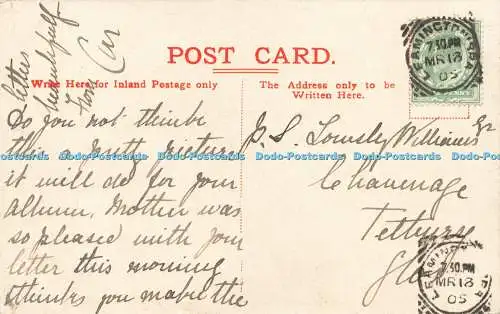 letters
beautifully
from Car
POST CARD.
Write Here for Inland Postage only
The Address only to be
Written Here.
LEAMINGTON SPA
7.30.PM
MR 18
05
Do you not thinke
this a pretty picture
it will do for your
album. Mother was
so pleased with your
letter this morning
thinks you make the
G. S. Lowsly Williams Esq
Chavenage
Tetbury
Glos
LEAMINGTON SPA
7.30.PM
MR 18
05
Dodo-Postcards Dodo-Postcards Dodo-Postcards Dodo-Postcards Dodo-Postcards Dodo-Postcards